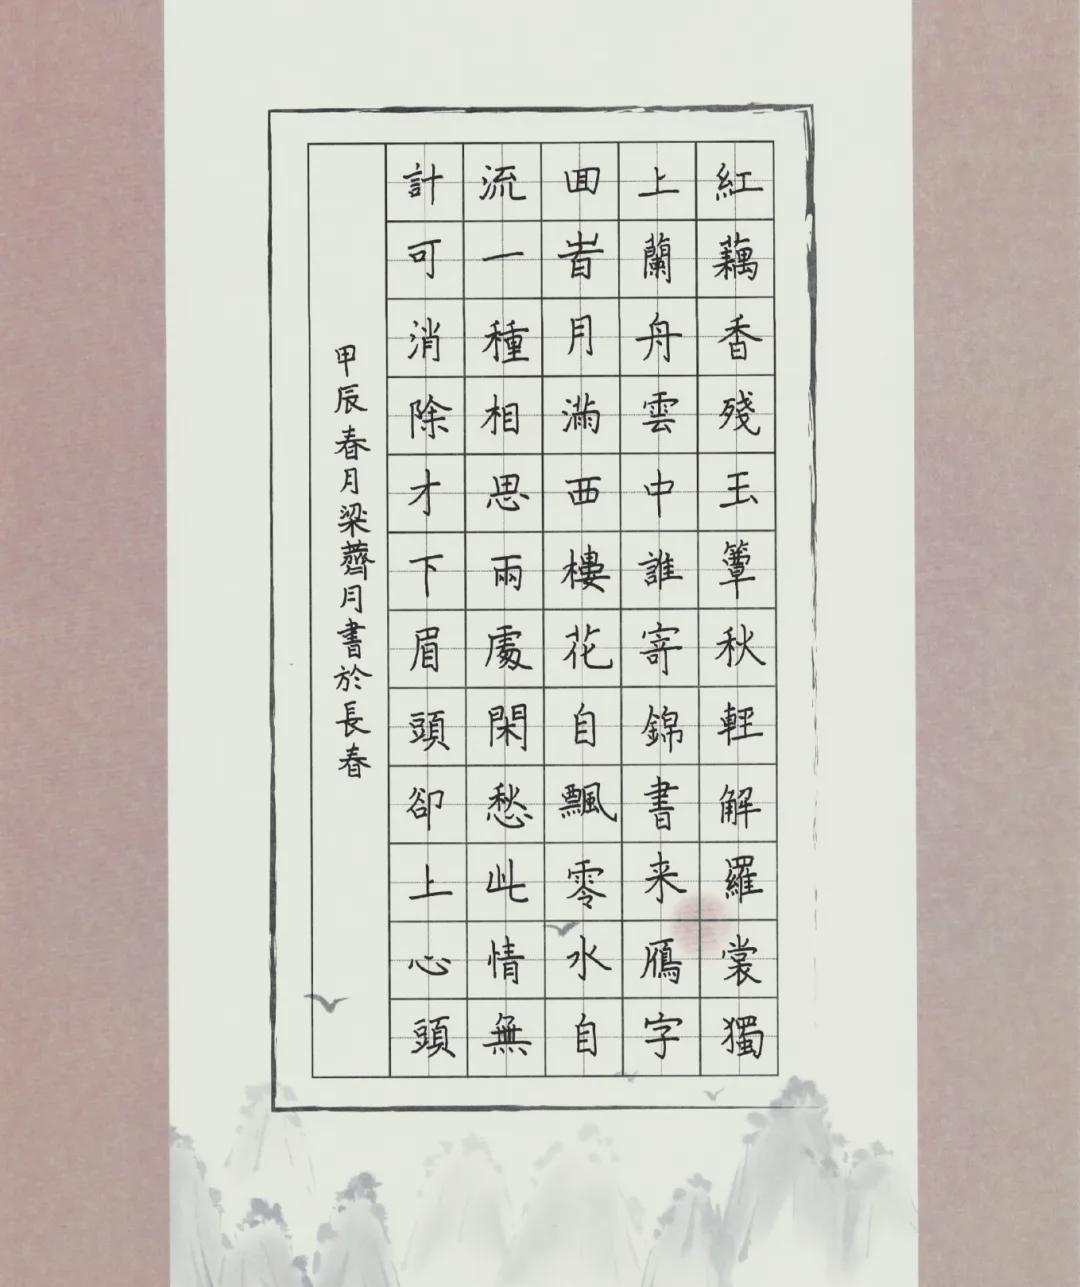 紅藕香殘玉簟秋輕解羅裳獨
上蘭舟雲中誰寄錦書来鴈字
囬旹月滿西樓花自飄零水自
流一種相思兩處閑愁此情無
計可消除才下眉頭卻上心頭
甲辰春月梁薺月書於長春